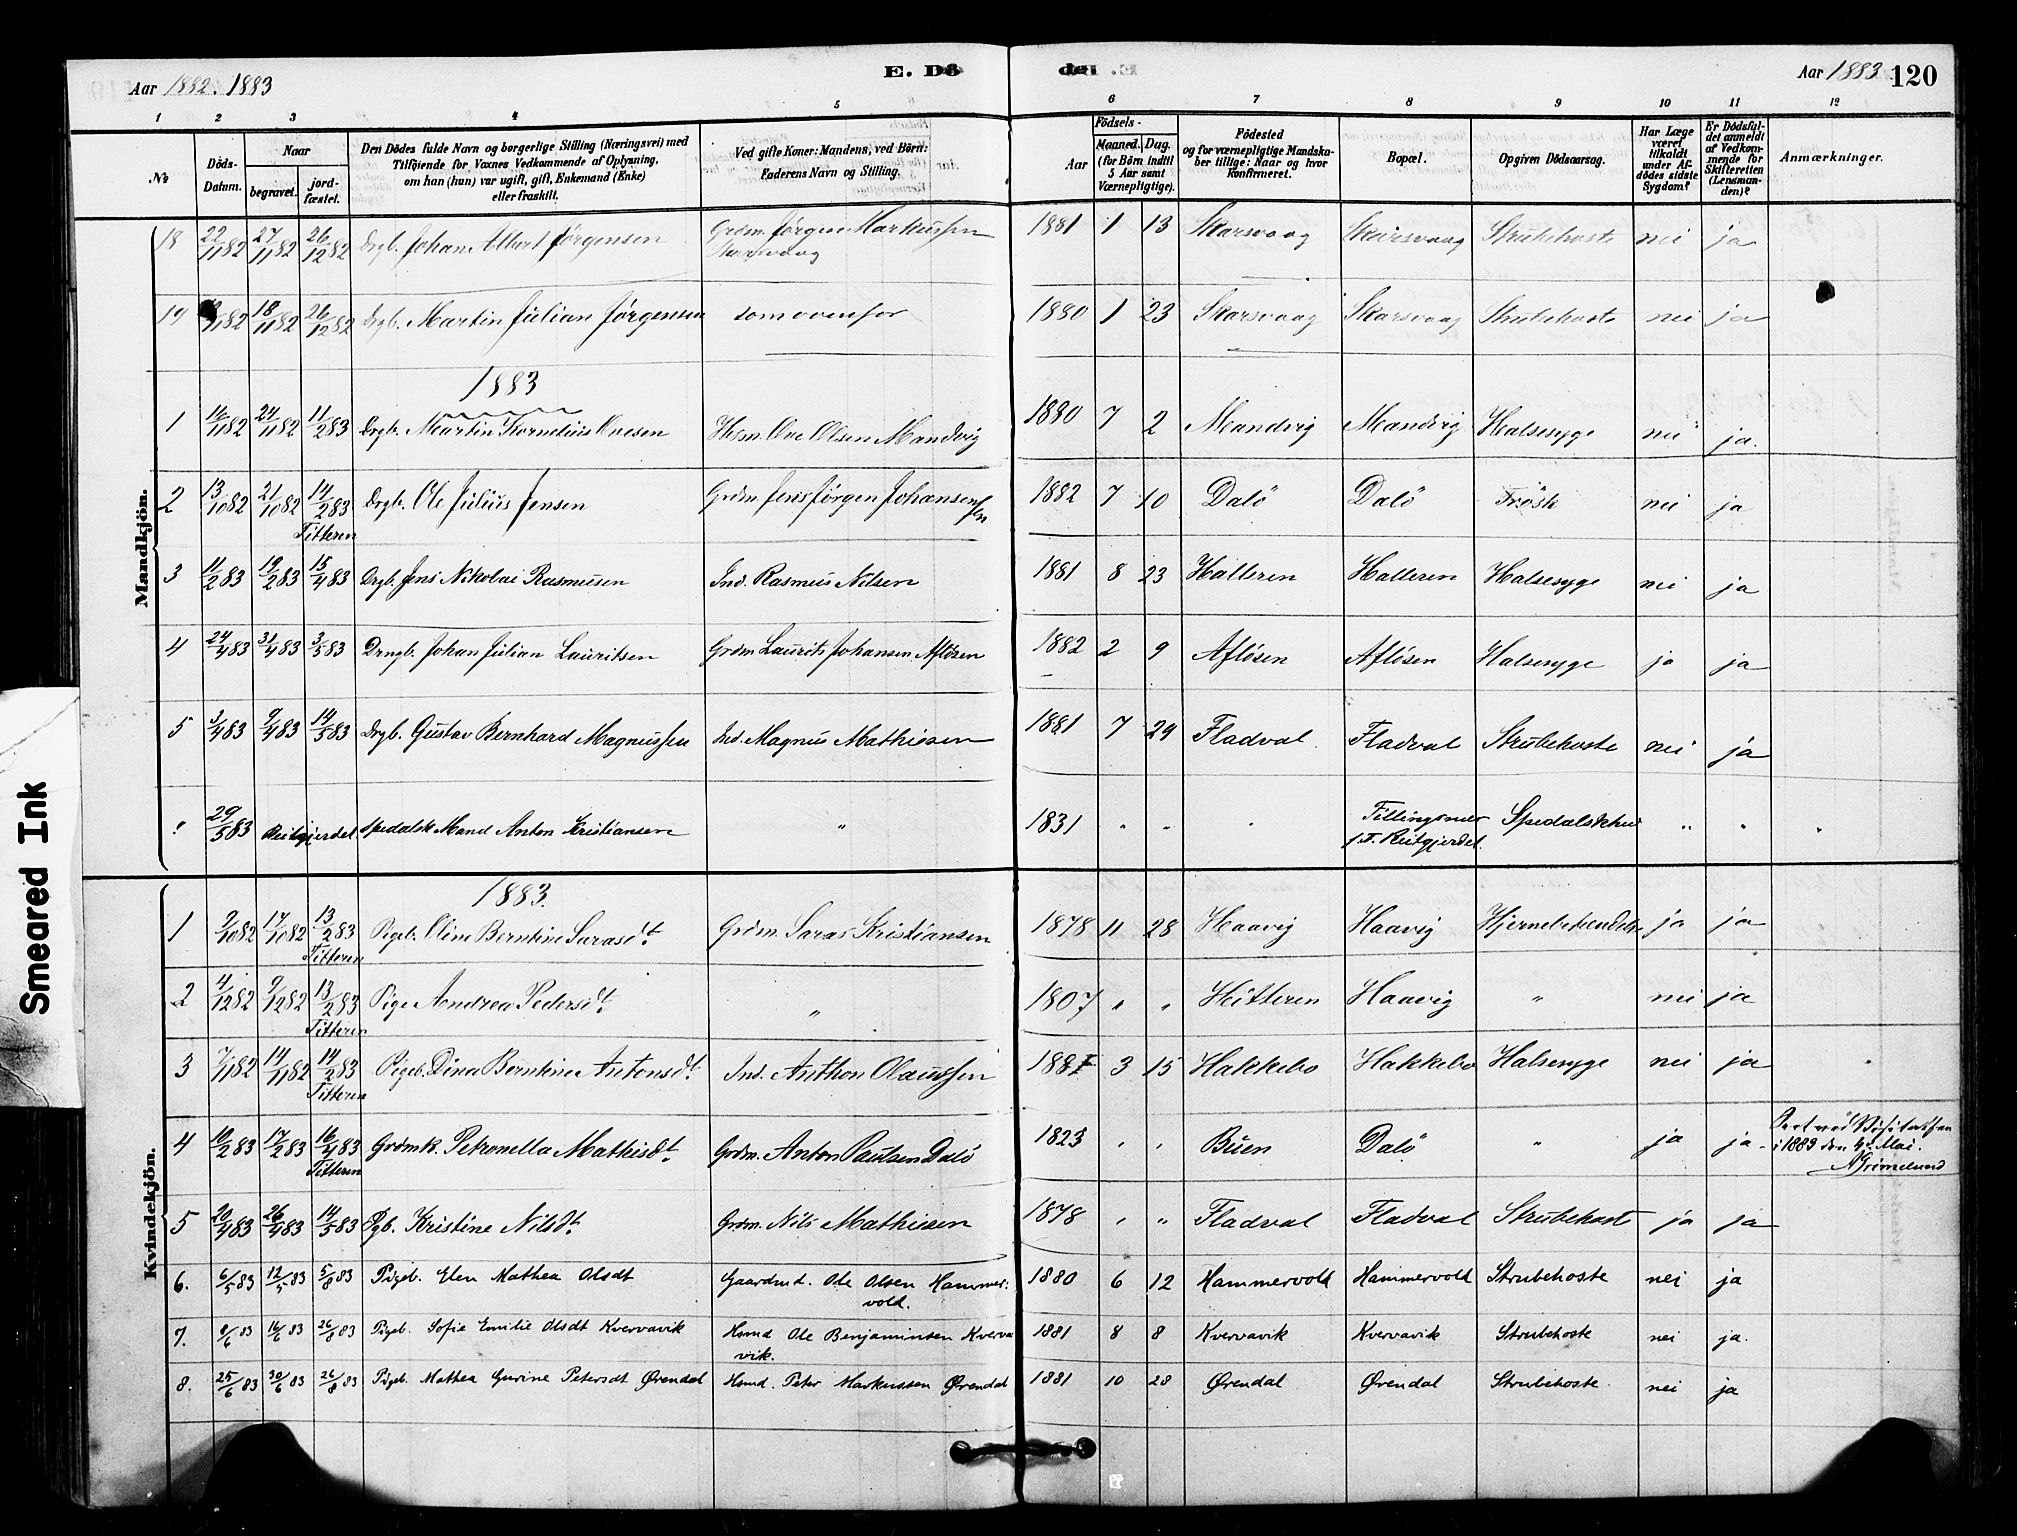 Aar 1882. 1883
E. Dö
den
Aar 1883. 120
1 2 3 4 5 6 7 8 9 10 11 12
No
Döds-Datum.
Naar
begravet.
jord-fæstet.
Den Dödes fulde Navn og borgerlige Stilling (Næringsvei) med
Tilföiende for Voxnes Vedkommende af Oplysning,
om han (hun) var ugift, gift, Enkemand (Enke)
eller fraskilt.
Ved gifte Koner: Mandens, ved Börn:
Faderens Navn og Stilling.
Födsels-
Aar
Maaned. Dag.
(for Börn indtil
5 Aar samt
Værnepligtige).
Födested
og for værnepligtige Mandska-
ber tillige: Naar og hvor
Konfirmeret.
Bopæl.
Opgiven Dödsaarsag.
Har Læge
været
tilkaldt
under Af-
dödes sidste
Sygdom?
Er Dödsful-
det anmeldt
af Vedkom-
mende for
Skifteretten
(Lensman-
den)?
Anmærkninger.
Mandkjön.
18 22/11 82 27/11 82 26/12 82 Drgb. Johan Albert Jørgensen Grdm. Jørgen Markussen Skarsvaag 1881 1 13 Skarsvaag Skarsvaag Strubehoste nei ja
19 /11 82 18/11 82 26/12 82 Drgb. Martin Julian Jørgensen som ovenfor 1880 1 23 Skarsvaag Skarsvaag Strubehoste nei ja
1883
1 14/11 82 24/11 82 11/2 83 Drgb. Martin Kornelius Ovesen Hsm. Ove Olsen Mandvig 1880 7 2 Mandvig Mandvig Halsesyge nei ja.
2 13/10 82 21/10 82 14/2 83 Titteren Drgb. Ole Julius Jensen Grdm Jens Jørgen Johansen 1882 7 10 Dalö Dalö Frösk nei ja
3 11/2 83 19/2 83 15/4 83 Drgb. Jens Nikolai Rasmusen Ind. Rasmus Nilsen 1881 8 23 Halteren Halteren Halsesyge nei ja
4 24/4 83 31/4 83 3/5 83 Drngb. Johan Julian Lauritsen Grdm Laurits Johansen Aflösen 1882 2 9 Aflösen Aflösen Halsesyge ja ja
5 3/4 83 9/4 83 14/5 83 Drgb. Gustav Bernhard Magnussen Ind. Magnus Mathiesen 1881 7 29 Fladval. Fladval Strubehoste nei ja
29/5 83 Reitgjerdet spedalsk Mand Anton Kristiansen " 1831 " " " Tillingsnes p.T. Reitgjerdet. Spedalskhed " " "
Kvindekjön.
1883.
1 9/10 82 17/10 82 13/2 83 Titteren Pigeb. Oline Berntine Sarasdt. Grdm. Saras Kristiansen 1878 11 28 Haavig Haavig Hjernebetændelse ja ja
2 4/12 82 9/12 82 13/2 83 Titteren Pige Andrea Pedersdt. " 1807 " " Hitteren Haavig " nei ja
3 7/11 82 14/11 82 14/2 83 Titteren Pigeb. Dina Berntine Antonsdt. Ind. Anthon Olaussen 1881 3 15 Hakkebo Hakkebo Halsesyge nei ja
4 10/2 83 17/2 83 16/4 83 Titteren Grdmk. Petronella Mathisdt. Grdm. Anton Paulsen Dalö 1823 " " Buen Dalö " ja ja. ved Visitatsen i 1883 den Mai. AGrimelund
5 20/4 83 26/4 83 14/5 83 Pgb. Kristine Nilsdt. Grdm. Nils Mathiesen 1878 " " Fladval Fladval Strubehoste ja ja
6. 6/5 83 12/5 83 5/8 83 Pigeb. Elen Mathea Olsdt Gaardmd. Ole Olsen Hammer-
vold. 1880 6 12 Hammervold Hammervold Strubehoste nei ja
7. 8/6 83 16/6 83 26/8 83 Pigeb. Sofie Emilie Olsdt Kvervavik Hsmd Ole Benjaminsen Kverva
vik. 1881 8 8 Kvervavik Kvervavik Strubehoste nei ja.
8. 25/6 83 30/6 83 26/8 83 Pigeb. Mathea Gurine Petersdt Ørendal Hsmd. Peter Markussen Ørendal 1881 10 28 Ørendal Ørendal Strubehoste. nei ja
Smeared Ink